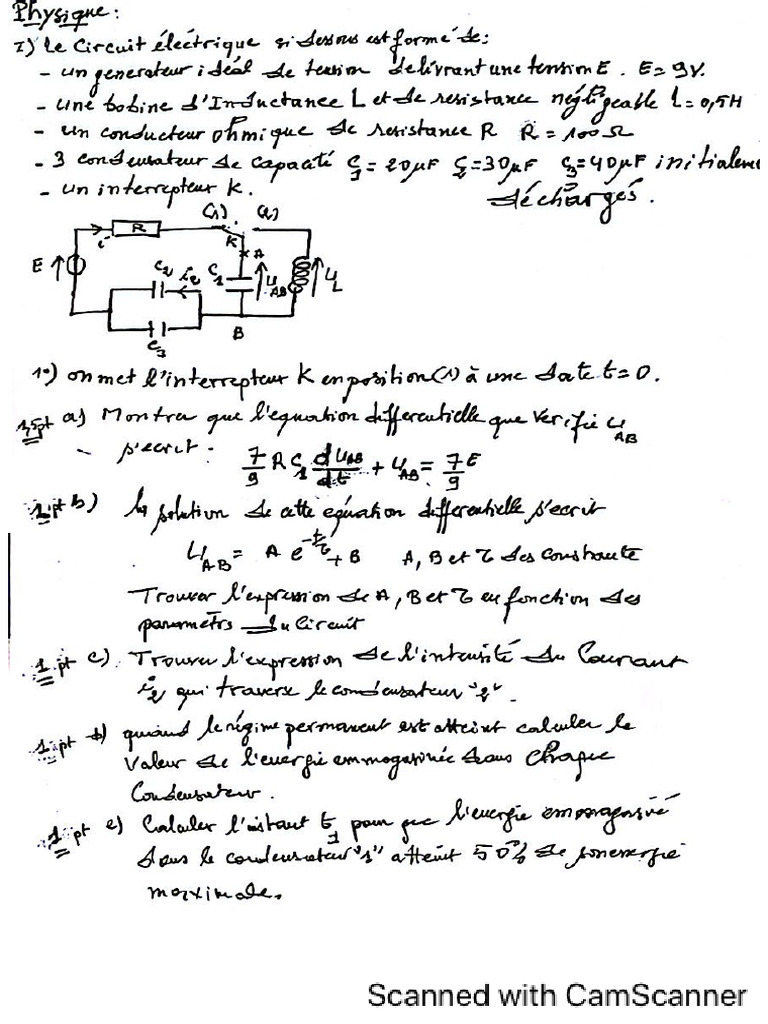 Physique:
I) le Circuit électrique si dessous est formé de:
- un generateur idéal de tension delivrant une tension E. E=9V.
- une bobine d'Inductance L et de resistance négligeable L=0,5H
- un conducteur ohmique de resistance R R=100Ω
- 3 condensateur de capacité C1=20μF C2=30μF C3=40μF initialeme
- un interrupteur K. déchargés.
(1) (2)
R
i
K
A
E
C2 i2 C1 UAB UL
C3
B
1°) on met l'interrupteur K en position (1) à une date t=0.
1,5pt a) Montrer que l'equation differentielle que verifie UAB
s'ecrit: 7/9 R C1 dUAB/dt + UAB = 7/9 E
1pt b) la solution de cette equation differentielle s'ecrit
UAB = A e^-t/τ + B A, B et τ des constante
Trouver l'expression de A, B et τ en fonction des
parametrs du Circuit
1pt c) Trouver l'expression de l'intensité du Courant
i2 qui traverse le condensateur "2".
1pt d) quand le régime permanent est atteint calculer la
Valeur de l'energie emmagasinée dans chaque
Condensateur.
1pt e) Calculer l'instant t1 pour que l'energie emmagasiné
dans le condensateur "1" atteint 50% de son energie
maximale.
Scanned with CamScanner